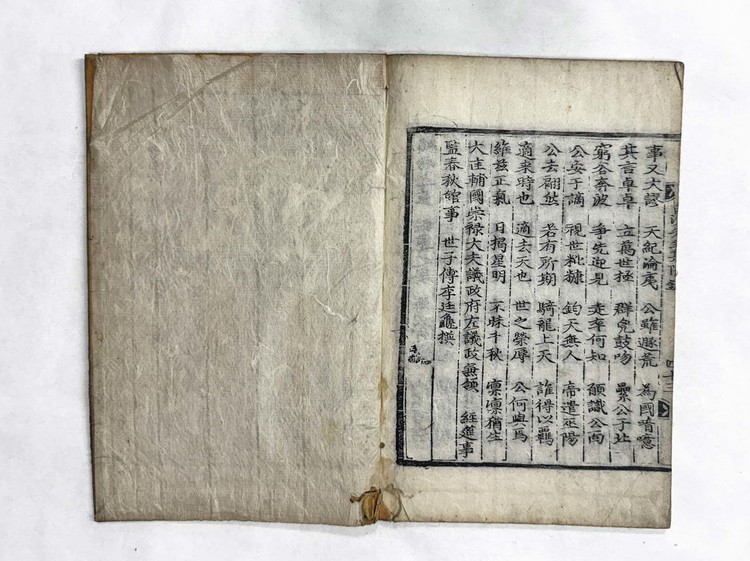 事又大謬 天紀淪夷 公雖遯荒 為國噫噫
其言卓卓 立萬世極 群兇鼓吻 纍公于北
窮谷奔波 爭先迎見 走卒何知 願識公面
公安于謫 視世粃糠 鈞天無人 帝遣巫陽
公去翩然 若有所期 騎龍上天 誰得以羈
適來時也 適去天也 世之榮辱 公何與焉
維玆正氣 日揭星明 不昧千秋 凛凛猶生
大匡輔國崇祿大夫議政府左議政兼領 經筵事
監春秋館事 世子傅李廷龜撰